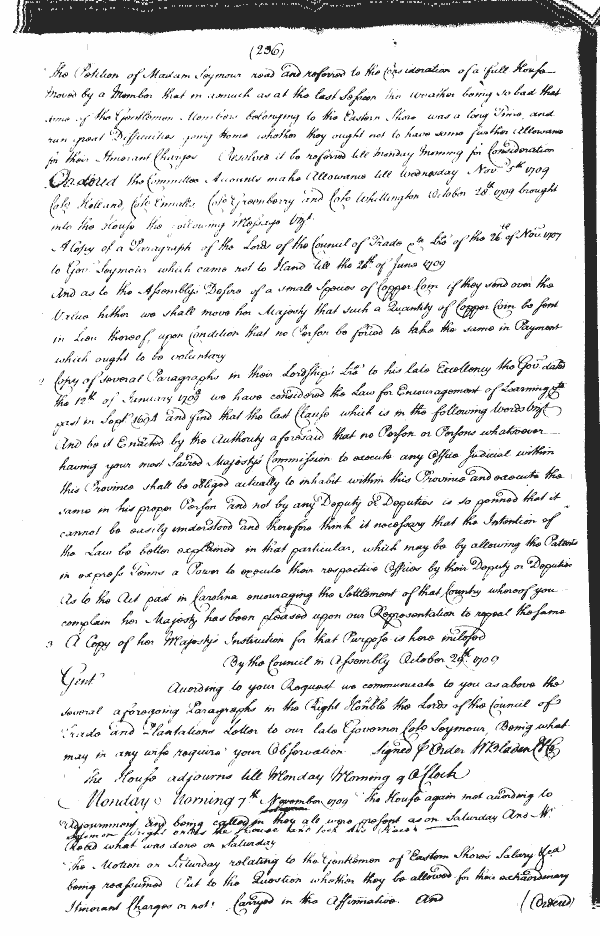 (236)
The Petition of Madam Seymour read and referred to the Consideration of a full House
Moved by a Member that in asmuch as at the last Session the Weather being so bad that
some of the Gentlemen Members belonging to the Eastern Shore was a long Time, and
run great Difficulties going home whether they ought not to have some further Allowance
for their Itinerant Charges Resolved it be referred till Monday Morning for Consideration
Ordered the Committee Accounts make Allowance till Wednesday Novr 5th 1709
Colo Holland, Colo Ennalls Colo Greenberry and Colo Whittington October 28th 1709 brought
into the House the following Message Vizt.
A Copy of a Paragraph of the Lords of the Council of Trade &ta Lre of the 26th of Nov. 1707
to Govr Seymour which came not to Hand till the 28th of June 1709
And as to the Assemblys Desire of a small Species of Copper Coin if they send over the
Value hither we shall move her Majesty that such a Quantity of Copper Coin be sent
in Lieu thereof, upon Condition that no Person be forced to take the same in Payment
which ought to be voluntary
2 Copy of several Paragraphs in their Lordship's Lre to his late Excellency the Govr dated
the 12th of January 1708 we have considered the Law for Encouragement of Learning &ta
past in Septr 1694 and find that the last Clause which is in the following Words Vizt
And be it Enacted by the Authority aforesaid that no Person or Persons whatsoever
having your most Sacred Majesty's Commission to execute any Office Judicial within
this Province shall be obliged actually to inhabit within this Province and execute the
same in his proper Person and not by any Deputy or Deputies is so penned that it
cannot be easily understood and therefore think it necessary that the Intention of
the Law be better explained in that particular, which may be by allowing the Patents
in express Terms a Power to execute their respective Offices by their Deputy or Deputies
As to the Act past in Carolina encouraging the Settlement of that Country whereof you
complain her Majesty has been pleased upon our Representation to repeal the same
3 A Copy of her Majesty's Instruction for that Purpose is here inclosed
By the Council in Assembly October 29th 1709
Gent
According to your Request we communicate to you as above the
several aforegoing Paragraphs in the Right Honble the Lords of the Council of
Trade and Plantations Letter to our late Governor Colo Seymour, Being what
may in any wise require your Observation Signed P Order W Bladen Cl Co
The House adjourns till Monday Morning 9 O'Clock
Monday Morning 7th November 1709 The House again met according to
Adjournment and being called in they all were present as on Saturday And Mr
Solomon Wright enters the House and took his Place
Read what was done on Saturday
The Motion on Saturday relating to the Gentlemen of Eastern Shore's Salary &ca
being reassumed Put to the Question whether they be allowed for their extraordinary
Itinerant Charges or not? Carryed in the Affirmative. And
(Ordered